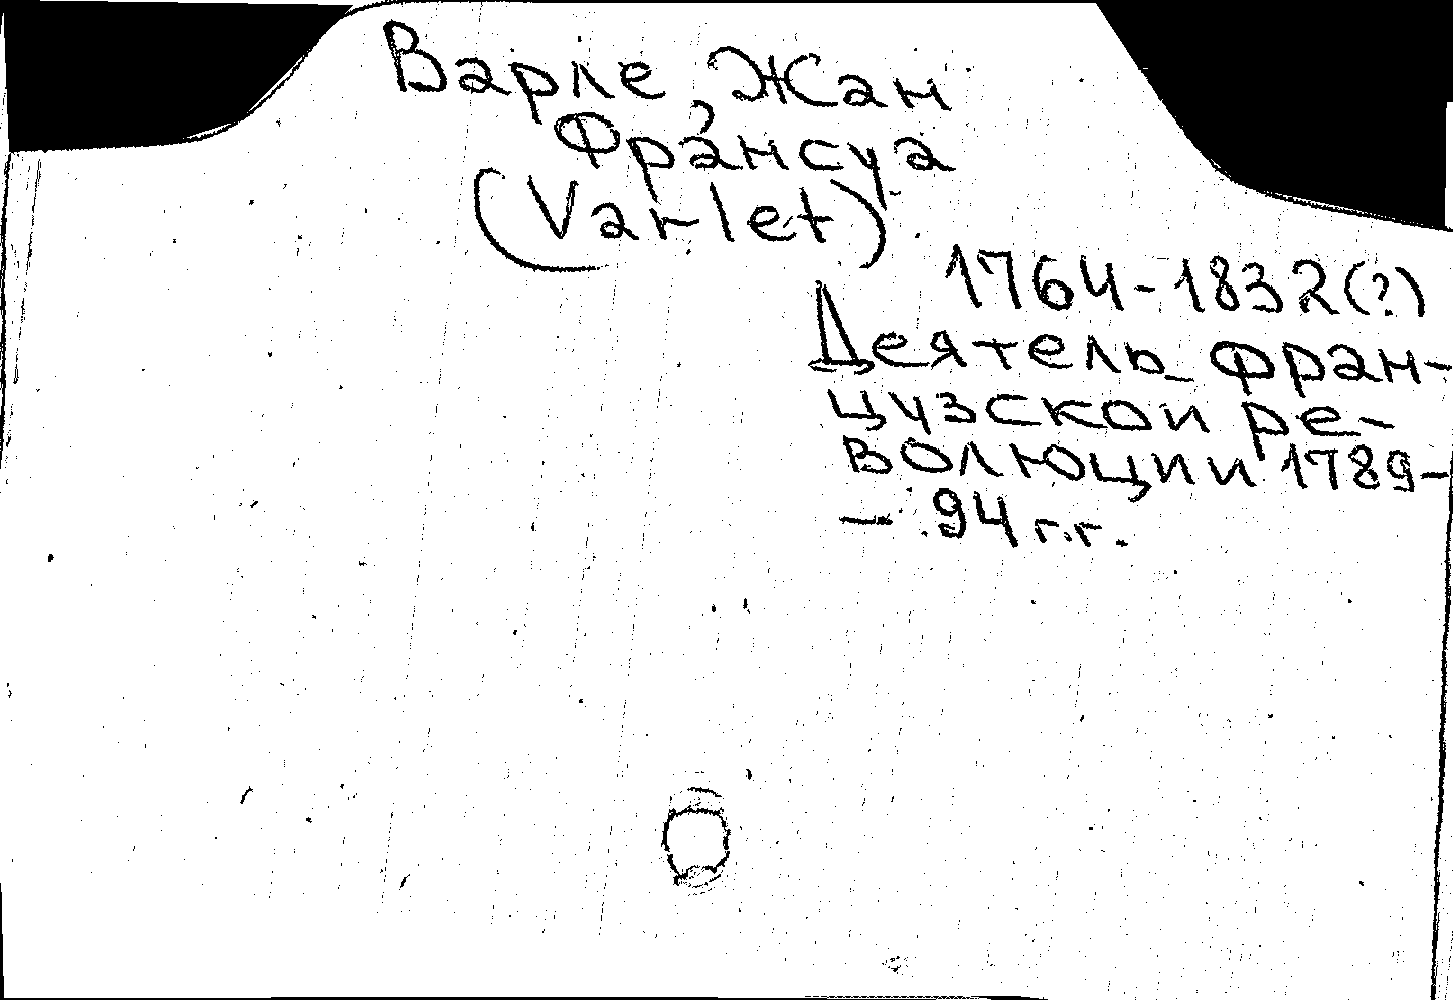 Варле, Жан
Франсуа
(Varlet)
1764-1832(?)
Деятель фран-
цузской ре-
волюции 1789-
- 94 г.г.